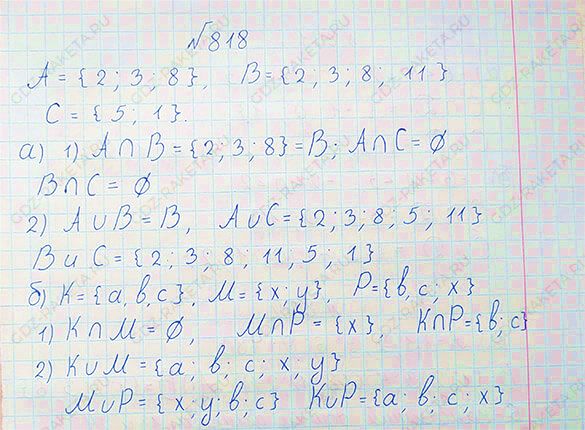 №818
A = {2; 3; 8}, B = {2; 3; 8; 11}
C = {5; 1}.
а) 1) A ∩ B = {2; 3; 8} = B; A ∩ C = ∅
B ∩ C = ∅
2) A ∪ B = B, A ∪ C = {2; 3; 8; 5; 11}
B и C = {2; 3; 8; 11, 5; 1}
б) K = {a, в, c}, M = {x; y}, P = {в, c; x}
1) K ∩ M = ∅, M ∩ P = {x}, K ∩ P = {в; c}
2) K ∪ M = {a; в; c; x; y}
M ∪ P = {x; y; в; c} K ∪ P = {a; в; c; x}